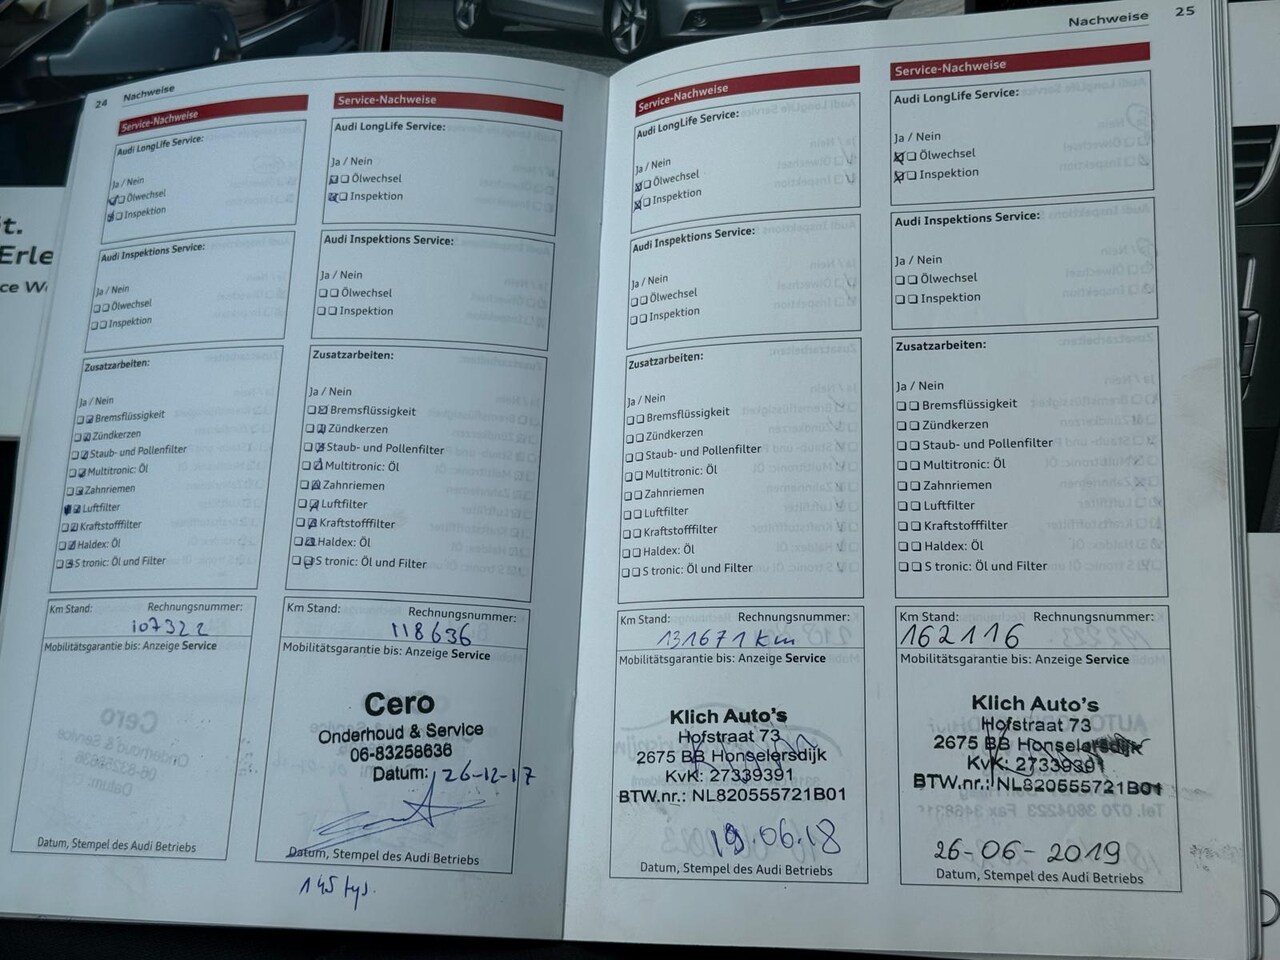 t.
Erle
ce W
24 Nachweise
Service-Nachweise
Audi LongLife Service:
Ja / Nein
Ölwechsel
Inspektion
Audi Inspektions Service:
Ja / Nein
Ölwechsel
Inspektion
Zusatzarbeiten:
Ja / Nein
Bremsflüssigkeit
Zündkerzen
Staub- und Pollenfilter
Multitronic: Öl
Zahnriemen
Luftfilter
Kraftstofffilter
Haldex: Öl
S tronic: Öl und Filter
Km Stand: Rechnungsnummer:
107322
Mobilitätsgarantie bis: Anzeige Service
Datum, Stempel des Audi Betriebs
Service-Nachweise
Audi LongLife Service:
Ja / Nein
Ölwechsel
Inspektion
Audi Inspektions Service:
Ja / Nein
Ölwechsel
Inspektion
Zusatzarbeiten:
Ja / Nein
Bremsflüssigkeit
Zündkerzen
Staub- und Pollenfilter
Multitronic: Öl
Zahnriemen
Luftfilter
Kraftstofffilter
Haldex: Öl
S tronic: Öl und Filter
Km Stand: Rechnungsnummer:
118636
Mobilitätsgarantie bis: Anzeige Service
Cero
Onderhoud & Service
06-83258636
Datum: 26-12-17
Datum, Stempel des Audi Betriebs
145 tys.
Nachweise 25
Service-Nachweise
Audi LongLife Service:
Ja / Nein
Ölwechsel
Inspektion
Audi Inspektions Service:
Ja / Nein
Ölwechsel
Inspektion
Zusatzarbeiten:
Ja / Nein
Bremsflüssigkeit
Zündkerzen
Staub- und Pollenfilter
Multitronic: Öl
Zahnriemen
Luftfilter
Kraftstofffilter
Haldex: Öl
S tronic: Öl und Filter
Km Stand: Rechnungsnummer:
131671 km
Mobilitätsgarantie bis: Anzeige Service
Klich Auto's
Hofstraat 73
2675 BB Honselersdijk
KvK: 27339391
BTW.nr.: NL820555721B01
19.06.18
Datum, Stempel des Audi Betriebs
Service-Nachweise
Audi LongLife Service:
Ja / Nein
Ölwechsel
Inspektion
Audi Inspektions Service:
Ja / Nein
Ölwechsel
Inspektion
Zusatzarbeiten:
Ja / Nein
Bremsflüssigkeit
Zündkerzen
Staub- und Pollenfilter
Multitronic: Öl
Zahnriemen
Luftfilter
Kraftstofffilter
Haldex: Öl
S tronic: Öl und Filter
Km Stand: Rechnungsnummer:
162116
Mobilitätsgarantie bis: Anzeige Service
Klich Auto's
Hofstraat 73
2675 BB Honselersdijk
KvK: 27339391
BTW.nr.: NL820555721B01
26-06-2019
Datum, Stempel des Audi Betriebs